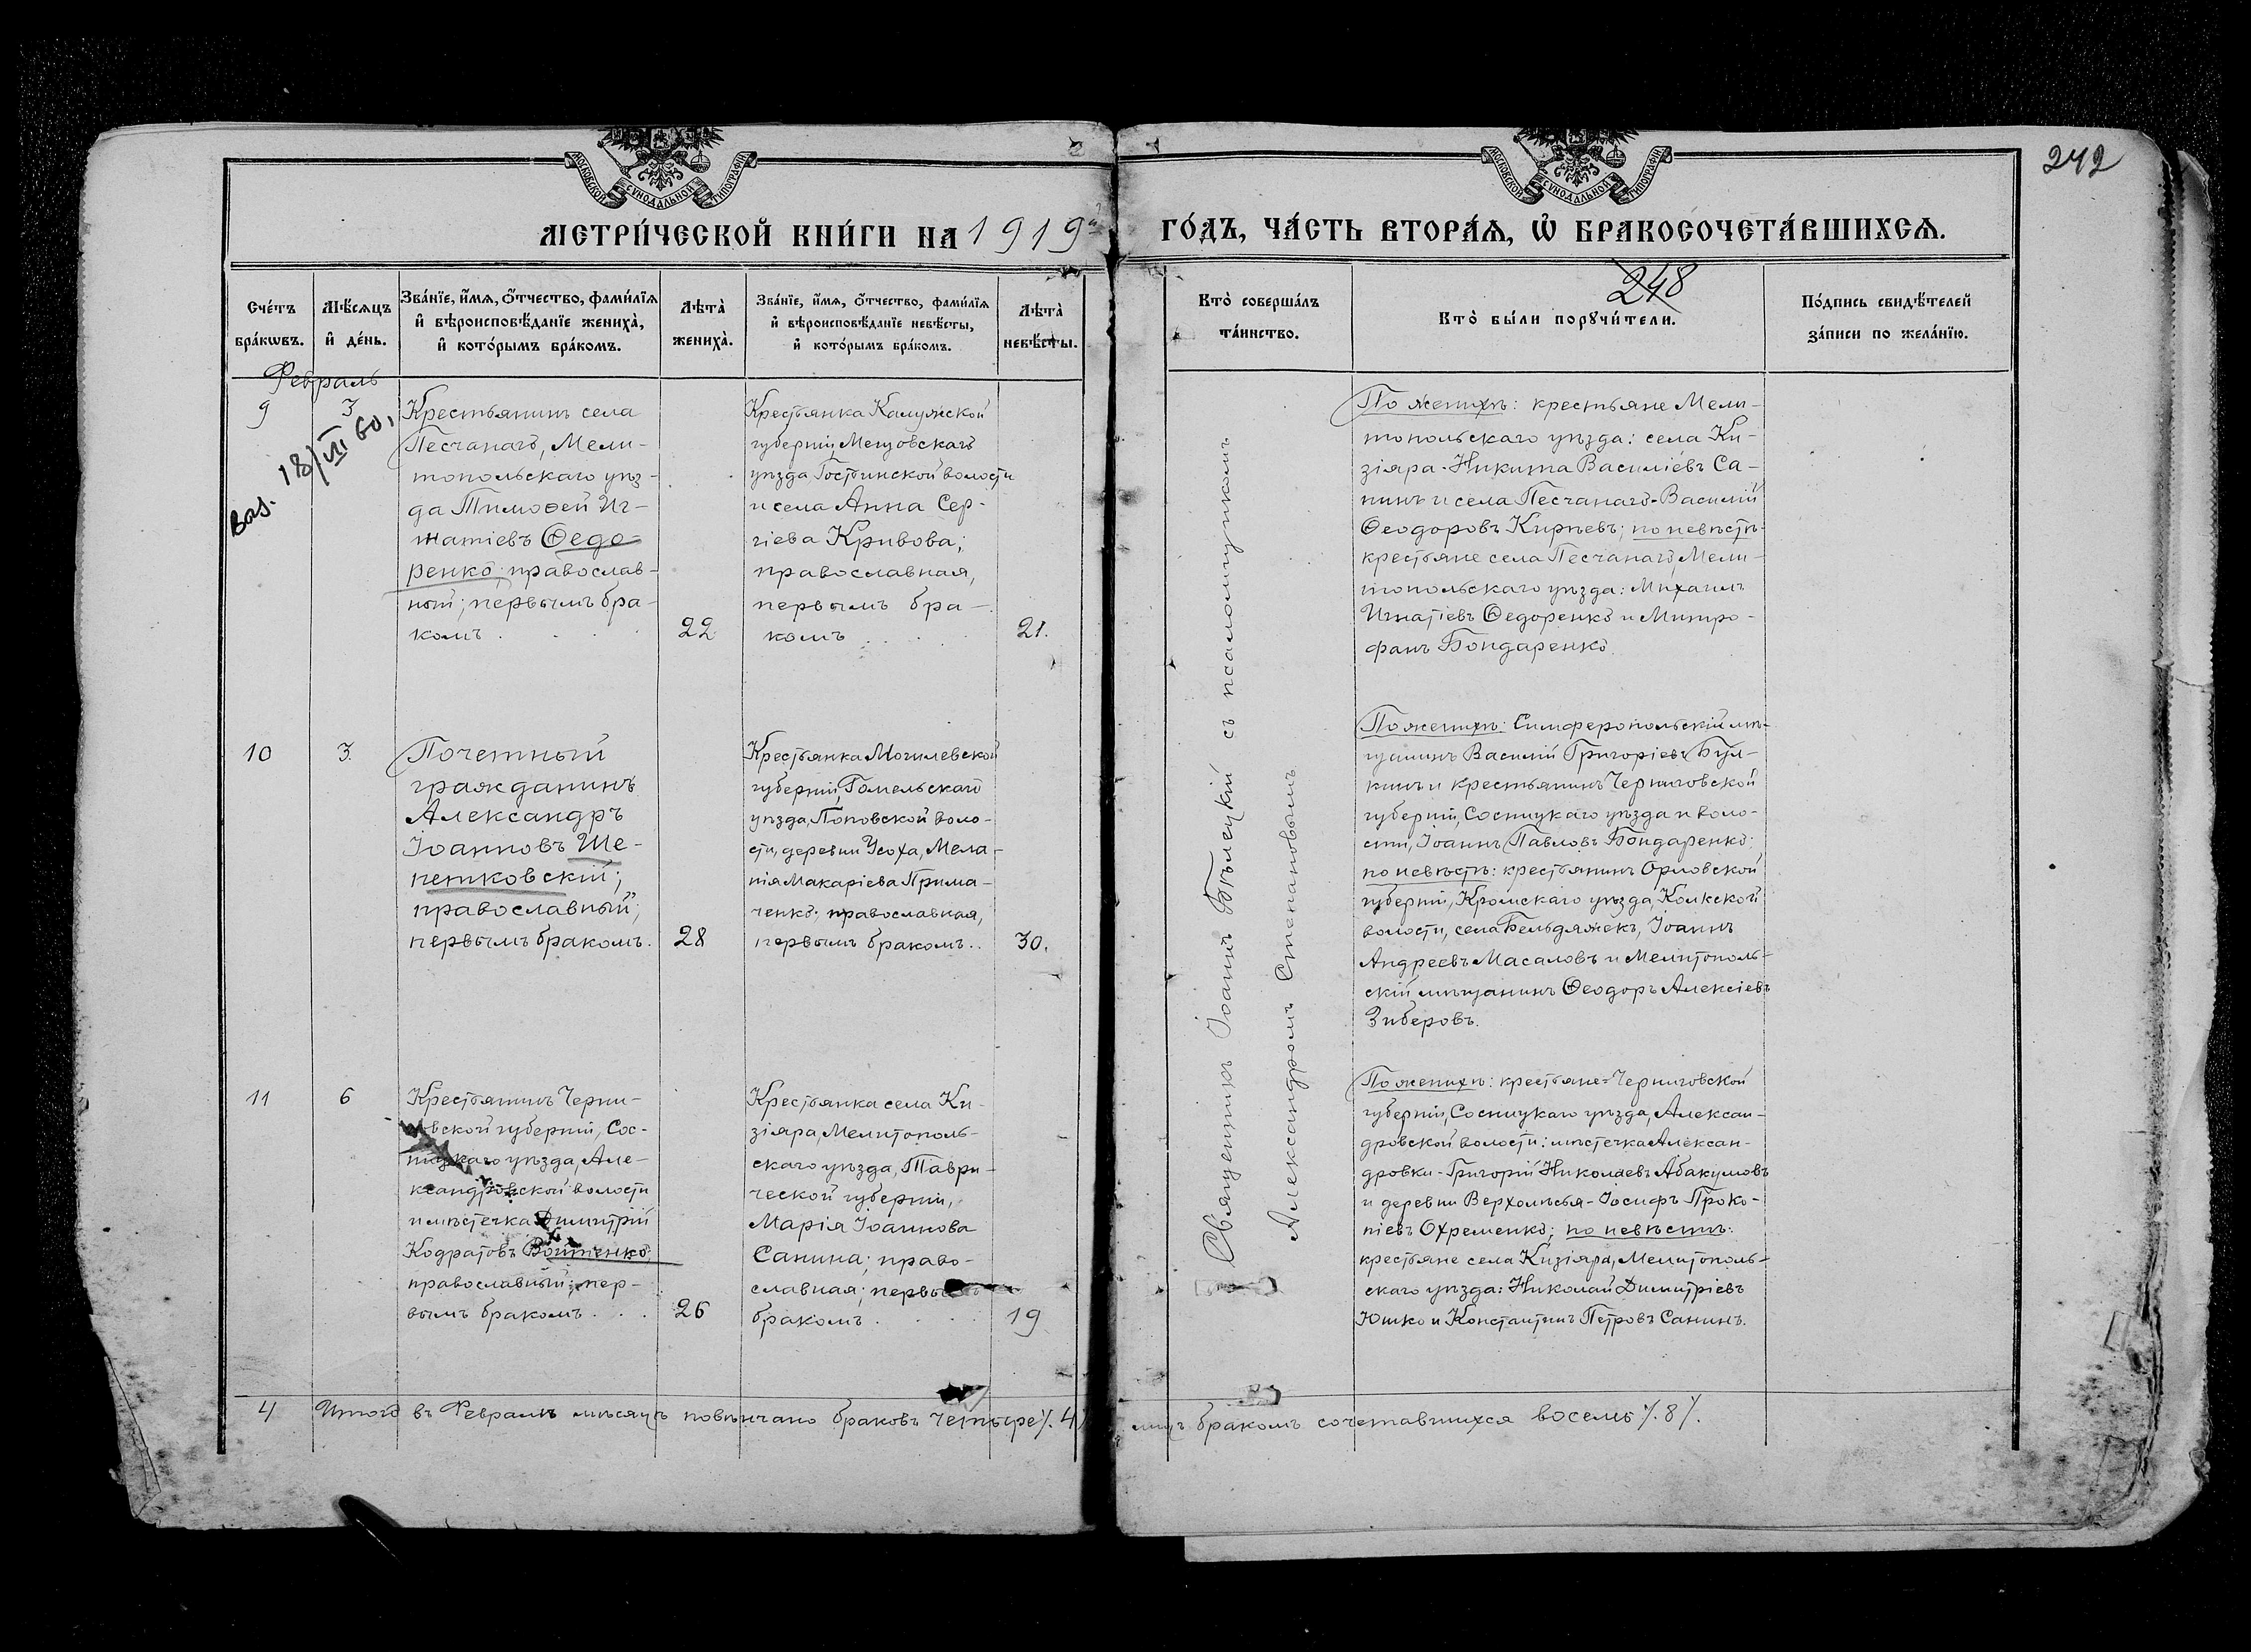 242
МОСКОВСКОЙ СѴНОДАЛЬНОЙ ТИПОГРАФІИ
МОСКОВСКОЙ СѴНОДАЛЬНОЙ ТИПОГРАФІИ
МЕТРИ́ЧЕСКОЙ КНИ́ГИ НА 1919й
ГО́ДЪ, ЧА́СТЬ ВТОРА́Ѧ, Ѽ БРАКОСОЧЕТА́ВШИХСѦ.
248
Сче́тъ
бра́кѡвъ.
Мѣ́сѧцъ
и҆ де́нь.
Зва́нїе, и҆́мѧ, ѻ҆́тчество, фами́лїѧ
и҆ вѣроисповѣ́данїе жениха̀,
и҆ кото́рымъ бра́комъ.
Лѣта̀
жениха̀.
Зва́нїе, и҆́мѧ, ѻ҆́тчество, фами́лїѧ
и҆ вѣроисповѣ́данїе невѣ́сты,
и҆ кото́рымъ бра́комъ.
Лѣта̀
невѣ́сты.
Кто̀ соверша́лъ
та́инство.
Кто̀ бы́ли порꙋчи́тели.
По́дпись свидѣ́телей
за́писи по жела́нїю.
Февраль
9
3
18/VII 60,
Крестьянинъ села
Песчанаго, Мели-
топольскаго уѣз-
да Тимоѳей Иг-
натіевъ Ѳедо-
ренко; православ-
ный; первымъ бра-
комъ . . . .
22
Крестьянка Калужской
губерніи, Мещовскаго
уѣзда Гостинской волости
и села Анна Сер-
гіева Кривова;
православная,
первымъ бра-
комъ . . . .
21.
По женихѣ: крестьяне Мели-
топольскаго уѣзда: села Ки-
зіяра - Никита Василіевъ Са-
нинъ и села Песчанаго - Василій
Ѳеодоровъ Кирѣевъ; по невѣстѣ:
крестьяне села Песчанаго, Мели-
топольскаго уѣзда: Михаилъ
Игнатіевъ Ѳедоренко и Митро-
фанъ Бондаренко.
10
3.
Почетный
гражданинъ
Александръ
Іоанновъ Ше-
петковскій;
православный;
первымъ бракомъ.
28
Крестьянка Могилевской
губерніи, Гомельскаго
уѣзда, Поповской воло-
сти, деревни Усоха, Мела-
нія Макаріева Прима-
ченко; православная,
первымъ бракомъ..
30.
По женихѣ: Симферопольскій мѣ-
щанинъ Василій Григоріевъ Бул-
кинъ и крестьянинъ Черниговской
губерніи, Сосницкаго уѣзда и воло-
сти, Іоаннъ Павловъ Бондаренко;
по невѣстѣ: крестьянинъ Орловской
губерніи, Кромскаго уѣзда, Колкской
волости, села Бельдяжекъ, Іоаннъ
Андреевъ Масаловъ и Мелитополь-
скій мѣщанинъ Ѳеодоръ Алексіевъ
Зиберовъ.
11
6
Крестьянинъ Черни-
говской губерніи, Сос-
ницкаго уѣзда, Але-
ксандровской волости
и мѣстечка Димитрій
Кодратовъ Войтенко;
православный; пер-
вымъ бракомъ . . .
26
Крестьянка села Ки-
зіяра, Мелитополь-
скаго уѣзда, Таври-
ческой губерніи,
Марія Іоаннова
Санина; право-
славная; первымъ
бракомъ . . . .
19
По женихѣ: крестьяне = Черниговской
губерніи, Сосницкаго уѣзда, Алексан-
дровской волости: мѣстечка Алексан-
дровки - Григорій Николаевъ Абакумовъ
и деревни Верхолѣсья - Іосифъ Проко-
піевъ Охременко; по невѣстѣ:
крестьяне села Кизіяра, Мелитополь-
скаго уѣзда: Николай Димитріевъ
Юшко и Константинъ Петровъ Санинъ.
Священникъ Іоаннъ Бѣлецкій съ псаломщикомъ
Александромъ Степановымъ
4 Итого въ Февралѣ мѣсяцѣ повѣнчано браковъ четыре /.4/. лицъ бракомъ сочетавшихся восемь /.8/.